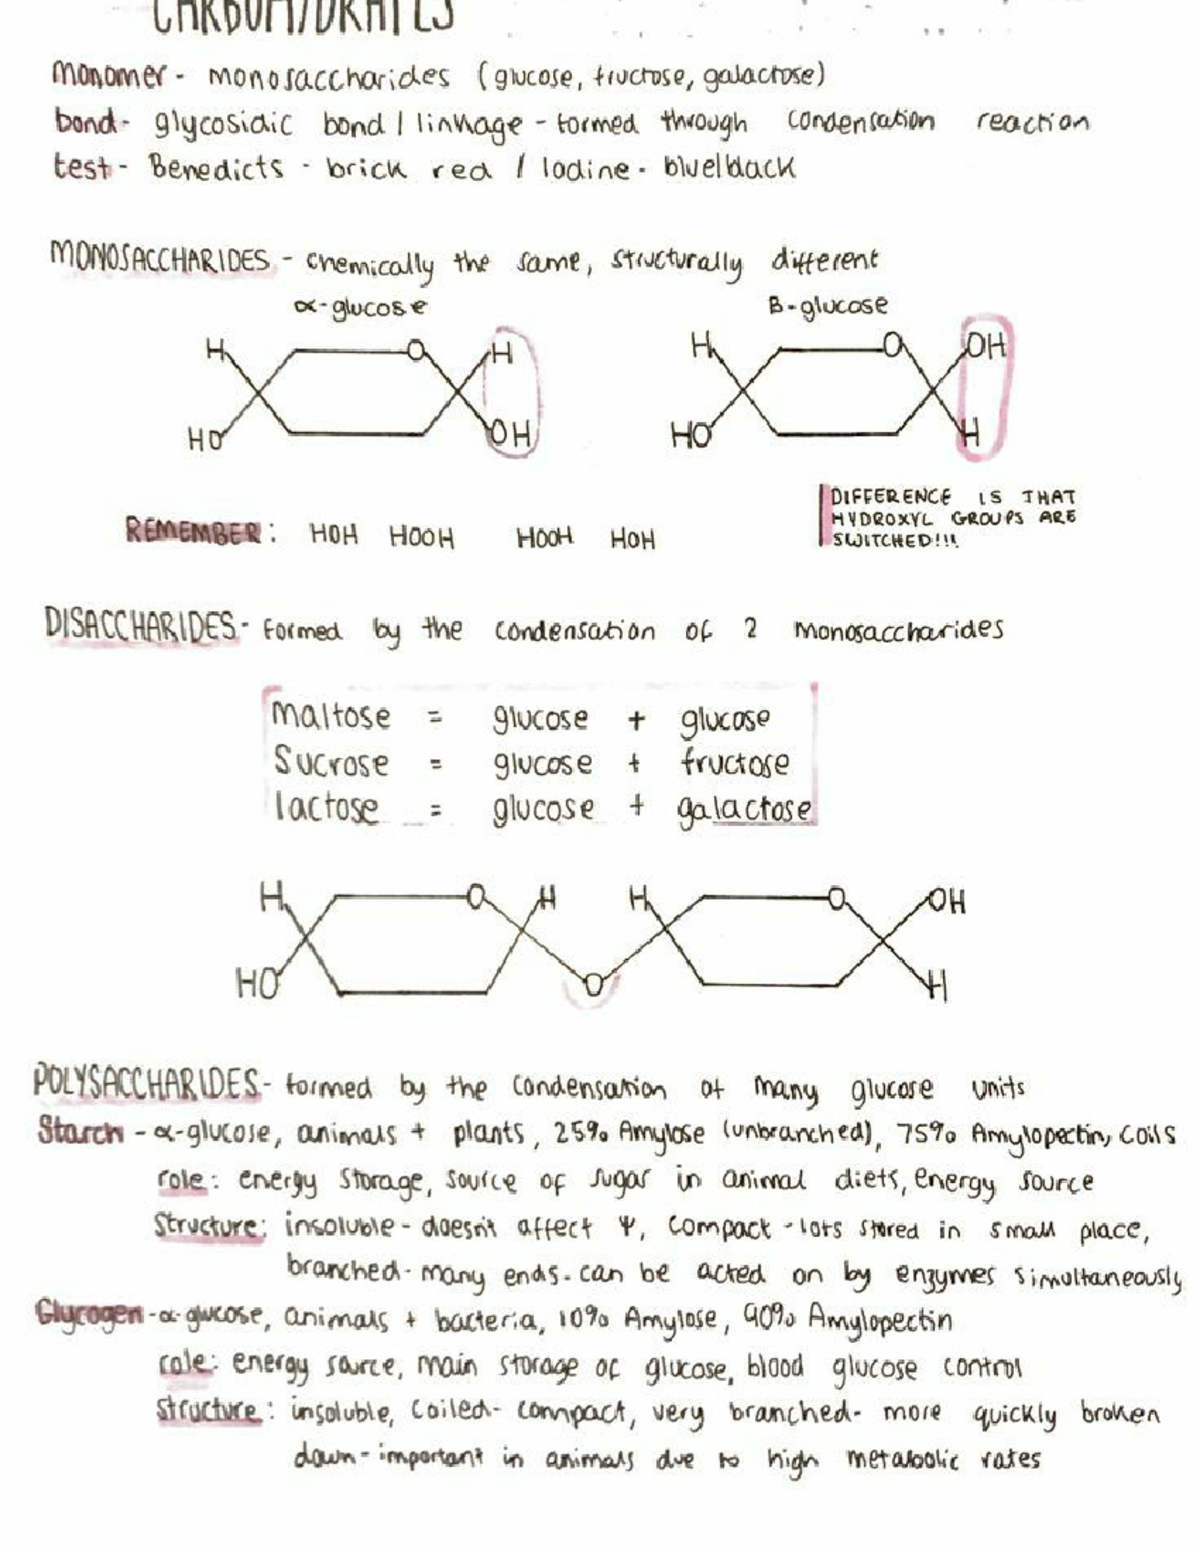 CARBOHYDRATES
Monomer - monosaccharides (glucose, fructose, galactose)
bond - glycosidic bond / linkage - formed through condensation reaction
test - Benedicts - brick red / Iodine - blue/black
MONOSACCHARIDES - chemically the same, structurally different
α-glucose B-glucose
H O H H O OH
HO OH HO H
DIFFERENCE IS THAT
HYDROXYL GROUPS ARE
SWITCHED!!!
REMEMBER: HOH HOOH HOOH HOH
DISACCHARIDES - formed by the condensation of 2 monosaccharides
Maltose = glucose + glucose
Sucrose = glucose + fructose
lactose = glucose + galactose
H O H H O OH
HO O H
POLYSACCHARIDES - formed by the condensation of many glucose units
Starch - α-glucose, animals + plants, 25% Amylose (unbranched), 75% Amylopectin, coils
role: energy storage, source of sugar in animal diets, energy source
Structure: insoluble - doesn't affect Ψ, compact - lots stored in small place,
branched - many ends - can be acted on by enzymes simultaneously
Glycogen - α-glucose, animals + bacteria, 10% Amylose, 90% Amylopectin
role: energy source, main storage of glucose, blood glucose control
structure: insoluble, coiled - compact, very branched - more quickly broken
down - important in animals due to high metabolic rates